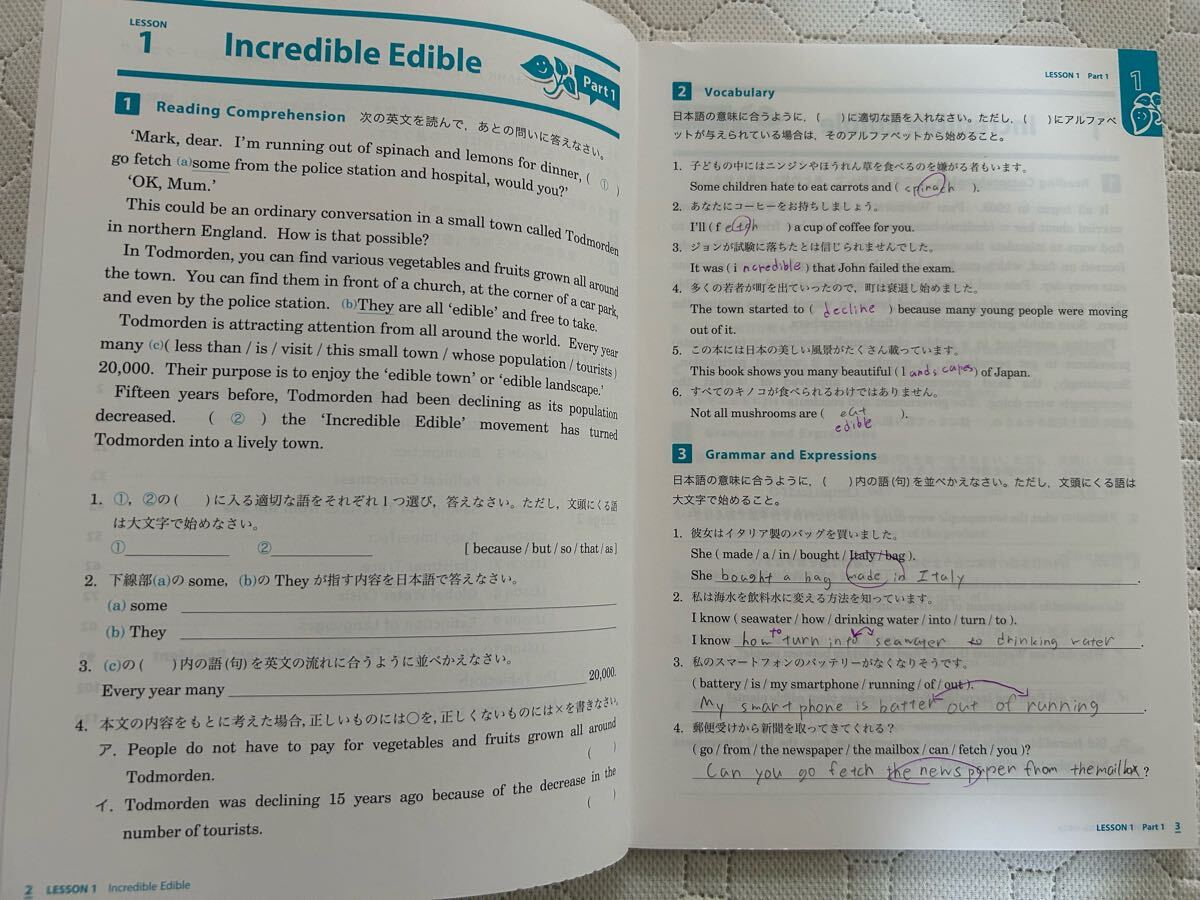 LESSON
1
Incredible Edible
Part 1
1 Reading Comprehension 次の英文を読んで，あとの問いに答えなさい。
'Mark, dear. I'm running out of spinach and lemons for dinner, ( ① )
go fetch (a)some from the police station and hospital, would you?'
'OK, Mum.'
This could be an ordinary conversation in a small town called Todmorden
in northern England. How is that possible?
In Todmorden, you can find various vegetables and fruits grown all around
the town. You can find them in front of a church, at the corner of a car park,
and even by the police station. (b)They are all 'edible' and free to take.
Todmorden is attracting attention from all around the world. Every year
many (c)( less than / is / visit / this small town / whose population / tourists )
20,000. Their purpose is to enjoy the 'edible town' or 'edible landscape.'
Fifteen years before, Todmorden had been declining as its population
decreased. ( ② ) the 'Incredible Edible' movement has turned
Todmorden into a lively town.
1. ①，②の( )に入る適切な語をそれぞれ1つ選び，答えなさい。ただし，文頭にくる語
は大文字で始めなさい。
① ②
[ because / but / so / that / as ]
2. 下線部(a)の some，(b)の They が指す内容を日本語で答えなさい。
(a) some
(b) They
3. (c)の( )内の語(句)を英文の流れに合うように並べかえなさい。
Every year many 20,000.
4. 本文の内容をもとに考えた場合，正しいものには○を，正しくないものには×を書きなさい。
ア. People do not have to pay for vegetables and fruits grown all around
Todmorden. ( )
イ. Todmorden was declining 15 years ago because of the decrease in the
number of tourists. ( )
2 LESSON 1 Incredible Edible
LESSON 1 Part 1
1
2 Vocabulary
日本語の意味に合うように，( )に適切な語を入れなさい。ただし，( )にアルファベ
ットが与えられている場合は，そのアルファベットから始めること。
1. 子どもの中にはニンジンやほうれん草を食べるのを嫌がる者もいます。
Some children hate to eat carrots and ( spinach ).
2. あなたにコーヒーをお持ちしましょう。
I'll ( f etch ) a cup of coffee for you.
3. ジョンが試験に落ちたとは信じられませんでした。
It was ( i ncredible ) that John failed the exam.
4. 多くの若者が町を出ていったので，町は衰退し始めました。
The town started to ( decline ) because many young people were moving
out of it.
5. この本には日本の美しい風景がたくさん載っています。
This book shows you many beautiful ( l andscapes ) of Japan.
6. すべてのキノコが食べられるわけではありません。
Not all mushrooms are ( eat ).
edible
3 Grammar and Expressions
日本語の意味に合うように，( )内の語(句)を並べかえなさい。ただし，文頭にくる語は
大文字で始めること。
1. 彼女はイタリア製のバッグを買いました。
She ( made / a / in / bought / Italy / bag ).
She bought a bag made in Italy.
2. 私は海水を飲料水に変える方法を知っています。
I know ( seawater / how / drinking water / into / turn / to ).
to
I know how turn into seawater to drinking water.
3. 私のスマートフォンのバッテリーがなくなりそうです。
( battery / is / my smartphone / running / of / out ).
My smartphone is batter out of running.
4. 郵便受けから新聞を取ってきてくれる？
( go / from / the newspaper / the mailbox / can / fetch / you )?
Can you go fetch the newspaper from the mailbox?
LESSON 1 Part 1 3